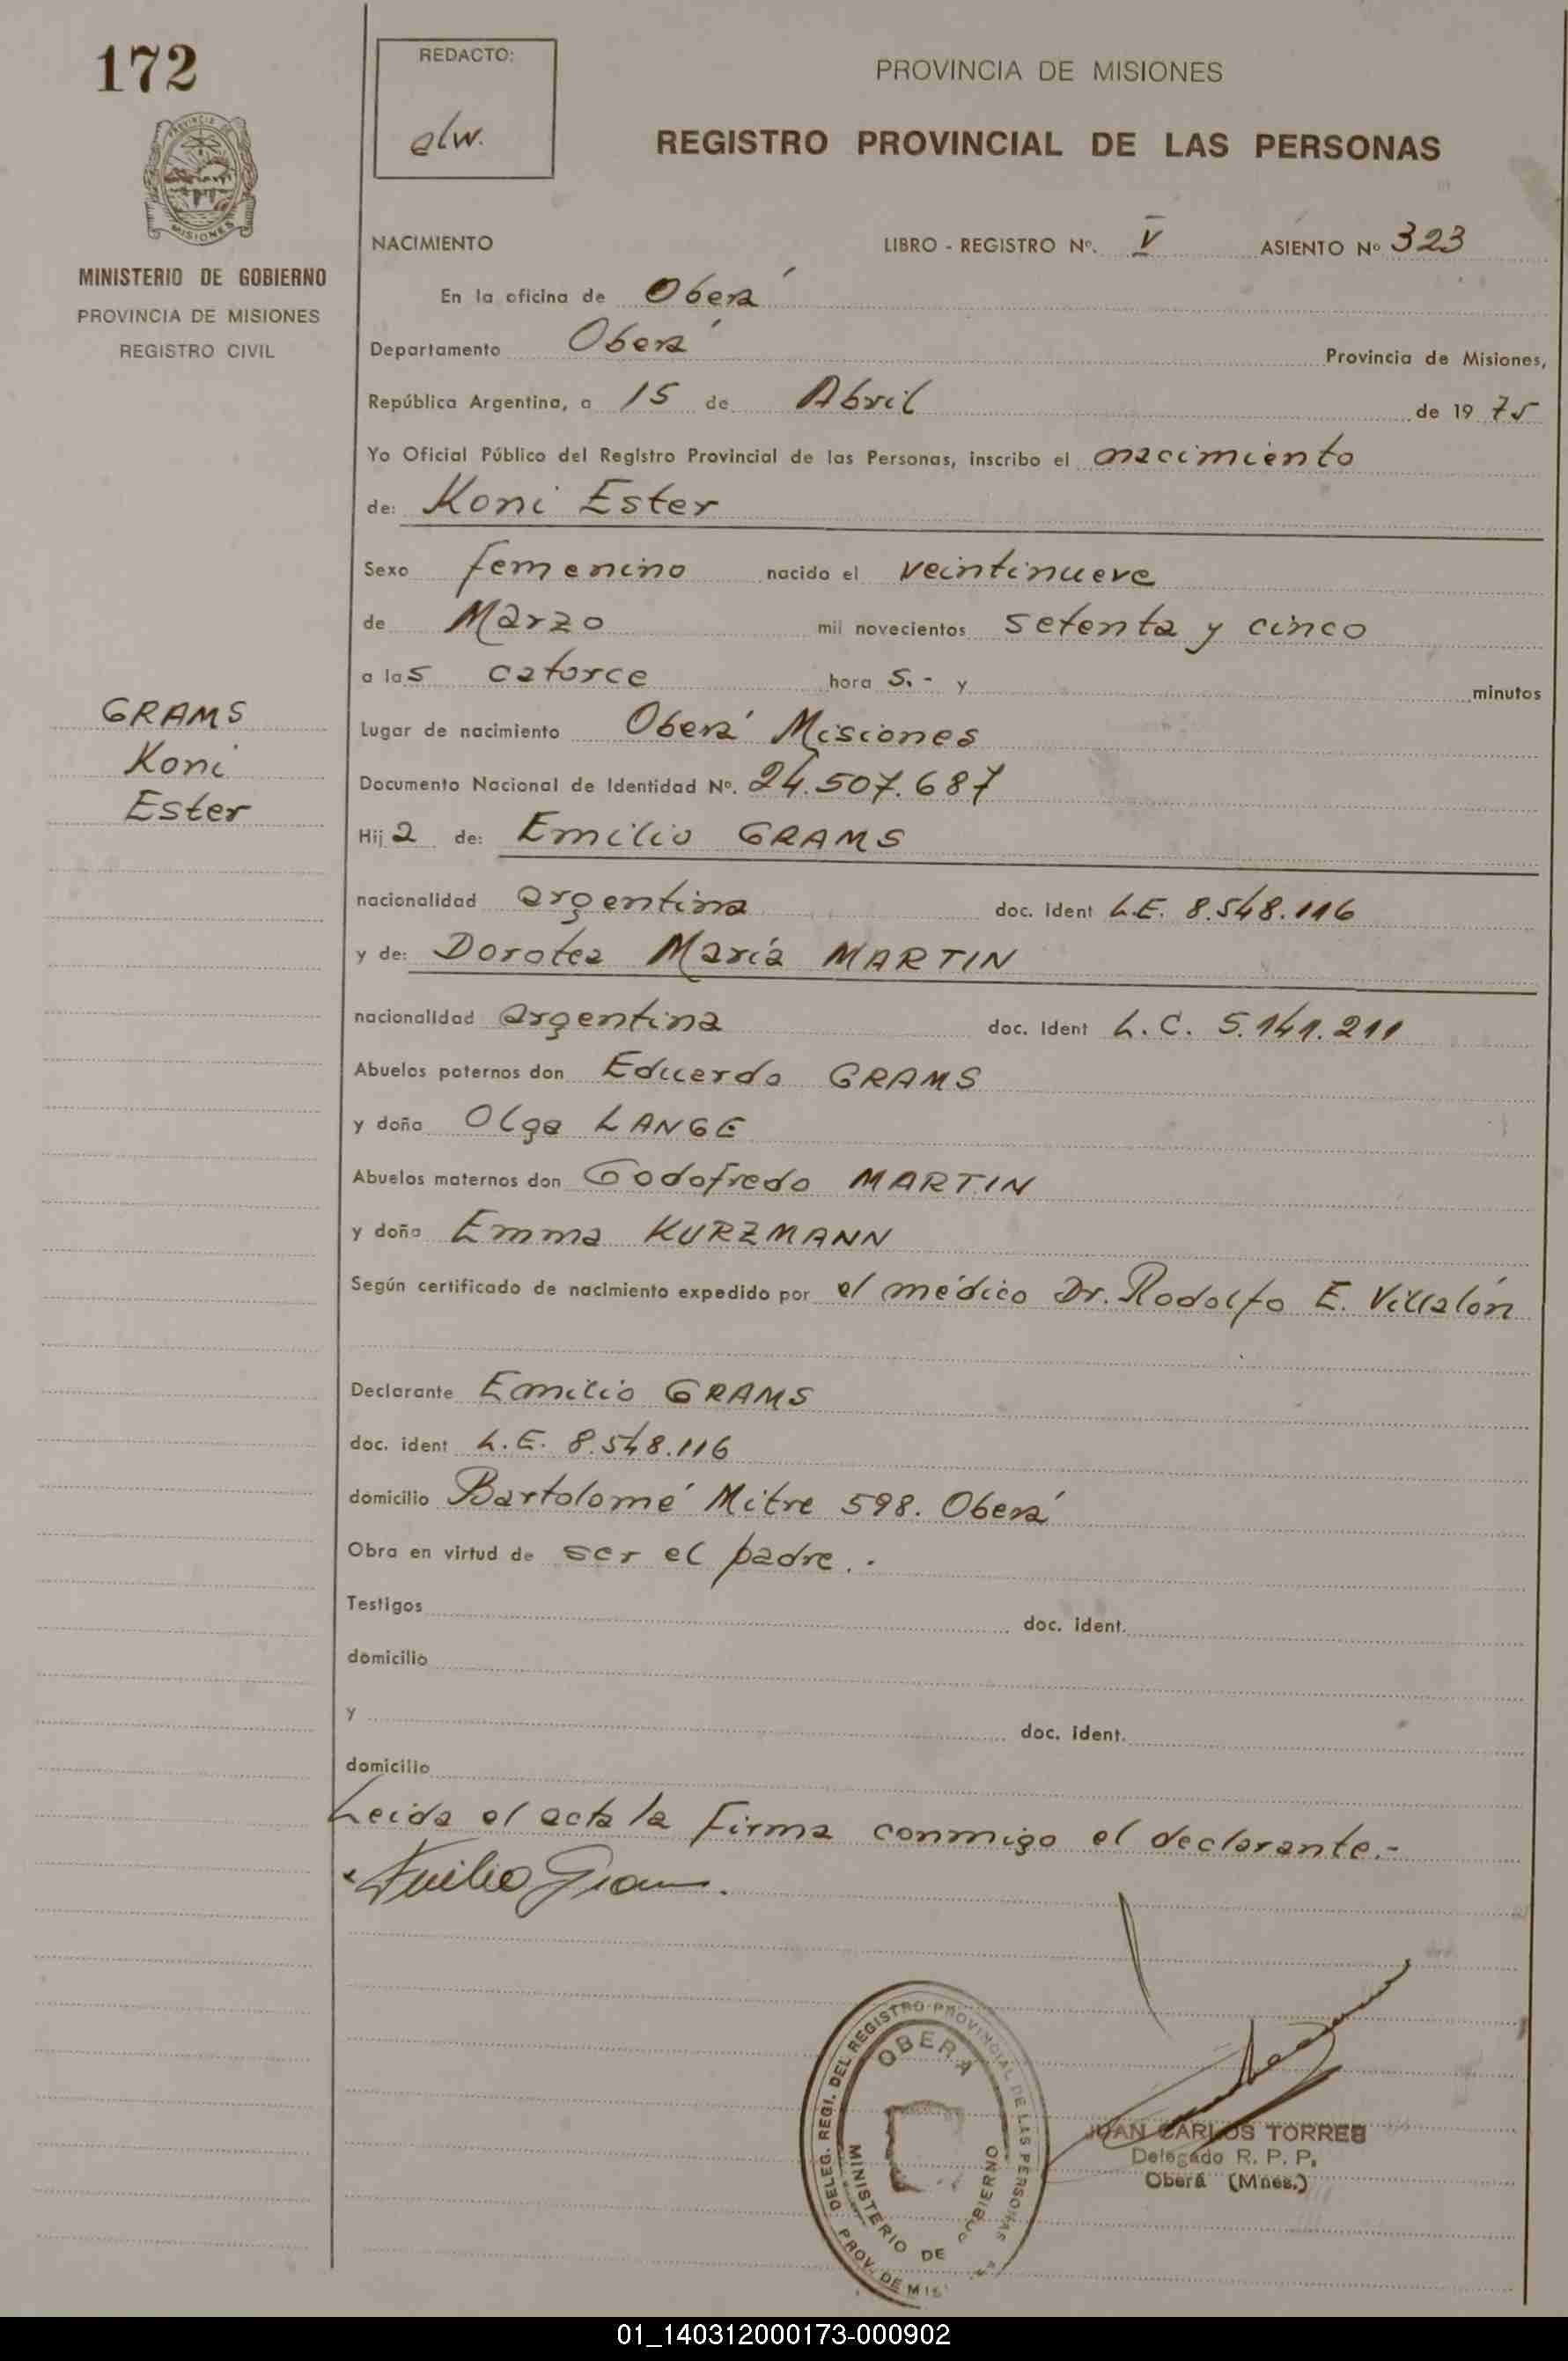 172
REDACTO:
elw.
PROVINCIA DE MISIONES
REGISTRO PROVINCIAL DE LAS PERSONAS
PROVINCIA DE
MISIONES
MINISTERIO DE GOBIERNO
PROVINCIA DE MISIONES
REGISTRO CIVIL
NACIMIENTO LIBRO - REGISTRO Nº. V ASIENTO Nº 323
En la oficina de Oberá
Departamento Oberá Provincia de Misiones,
República Argentina, a 15 de Abril de 19 75
Yo Oficial Público del Registro Provincial de las Personas, inscribo el nacimiento
de: Koni Ester
Sexo femenino nacido el veintinueve
de Marzo mil novecientos setenta y cinco
a las catorce hora s.- y minutos
GRAMS
Koni
Ester
Lugar de nacimiento Oberá Misiones
Documento Nacional de Identidad Nº. 24.507.687
Hija de: Emilio GRAMS
nacionalidad argentina doc. ident L.E. 8.548.116
y de: Dorotea María MARTIN
nacionalidad argentina doc. ident L.C. 5.141.211
Abuelos paternos don Eduardo GRAMS
y doña Olga LANGE
Abuelos maternos don Godofredo MARTIN
y doña Emma KURZMANN
Según certificado de nacimiento expedido por el médico Dr. Rodolfo E. Villalón
Declarante Emilio GRAMS
doc. ident L.E. 8.548.116
domicilio Bartolomé Mitre 598. Oberá
Obra en virtud de ser el padre.-
Testigos doc. ident.
domicilio
y doc. ident.
domicilio
Leida el acta la firma conmigo el declarante.-
Emilio Grams.
DELEG. REGI. DEL REGISTRO PROVINCIAL DE LAS PERSONAS
OBERA
MINISTERIO DE GOBIERNO
PROV. DE MIS
JUAN CARLOS TORRES
Delegado R. P. P.
Oberá (Mnes.)
01_140312000173-000902